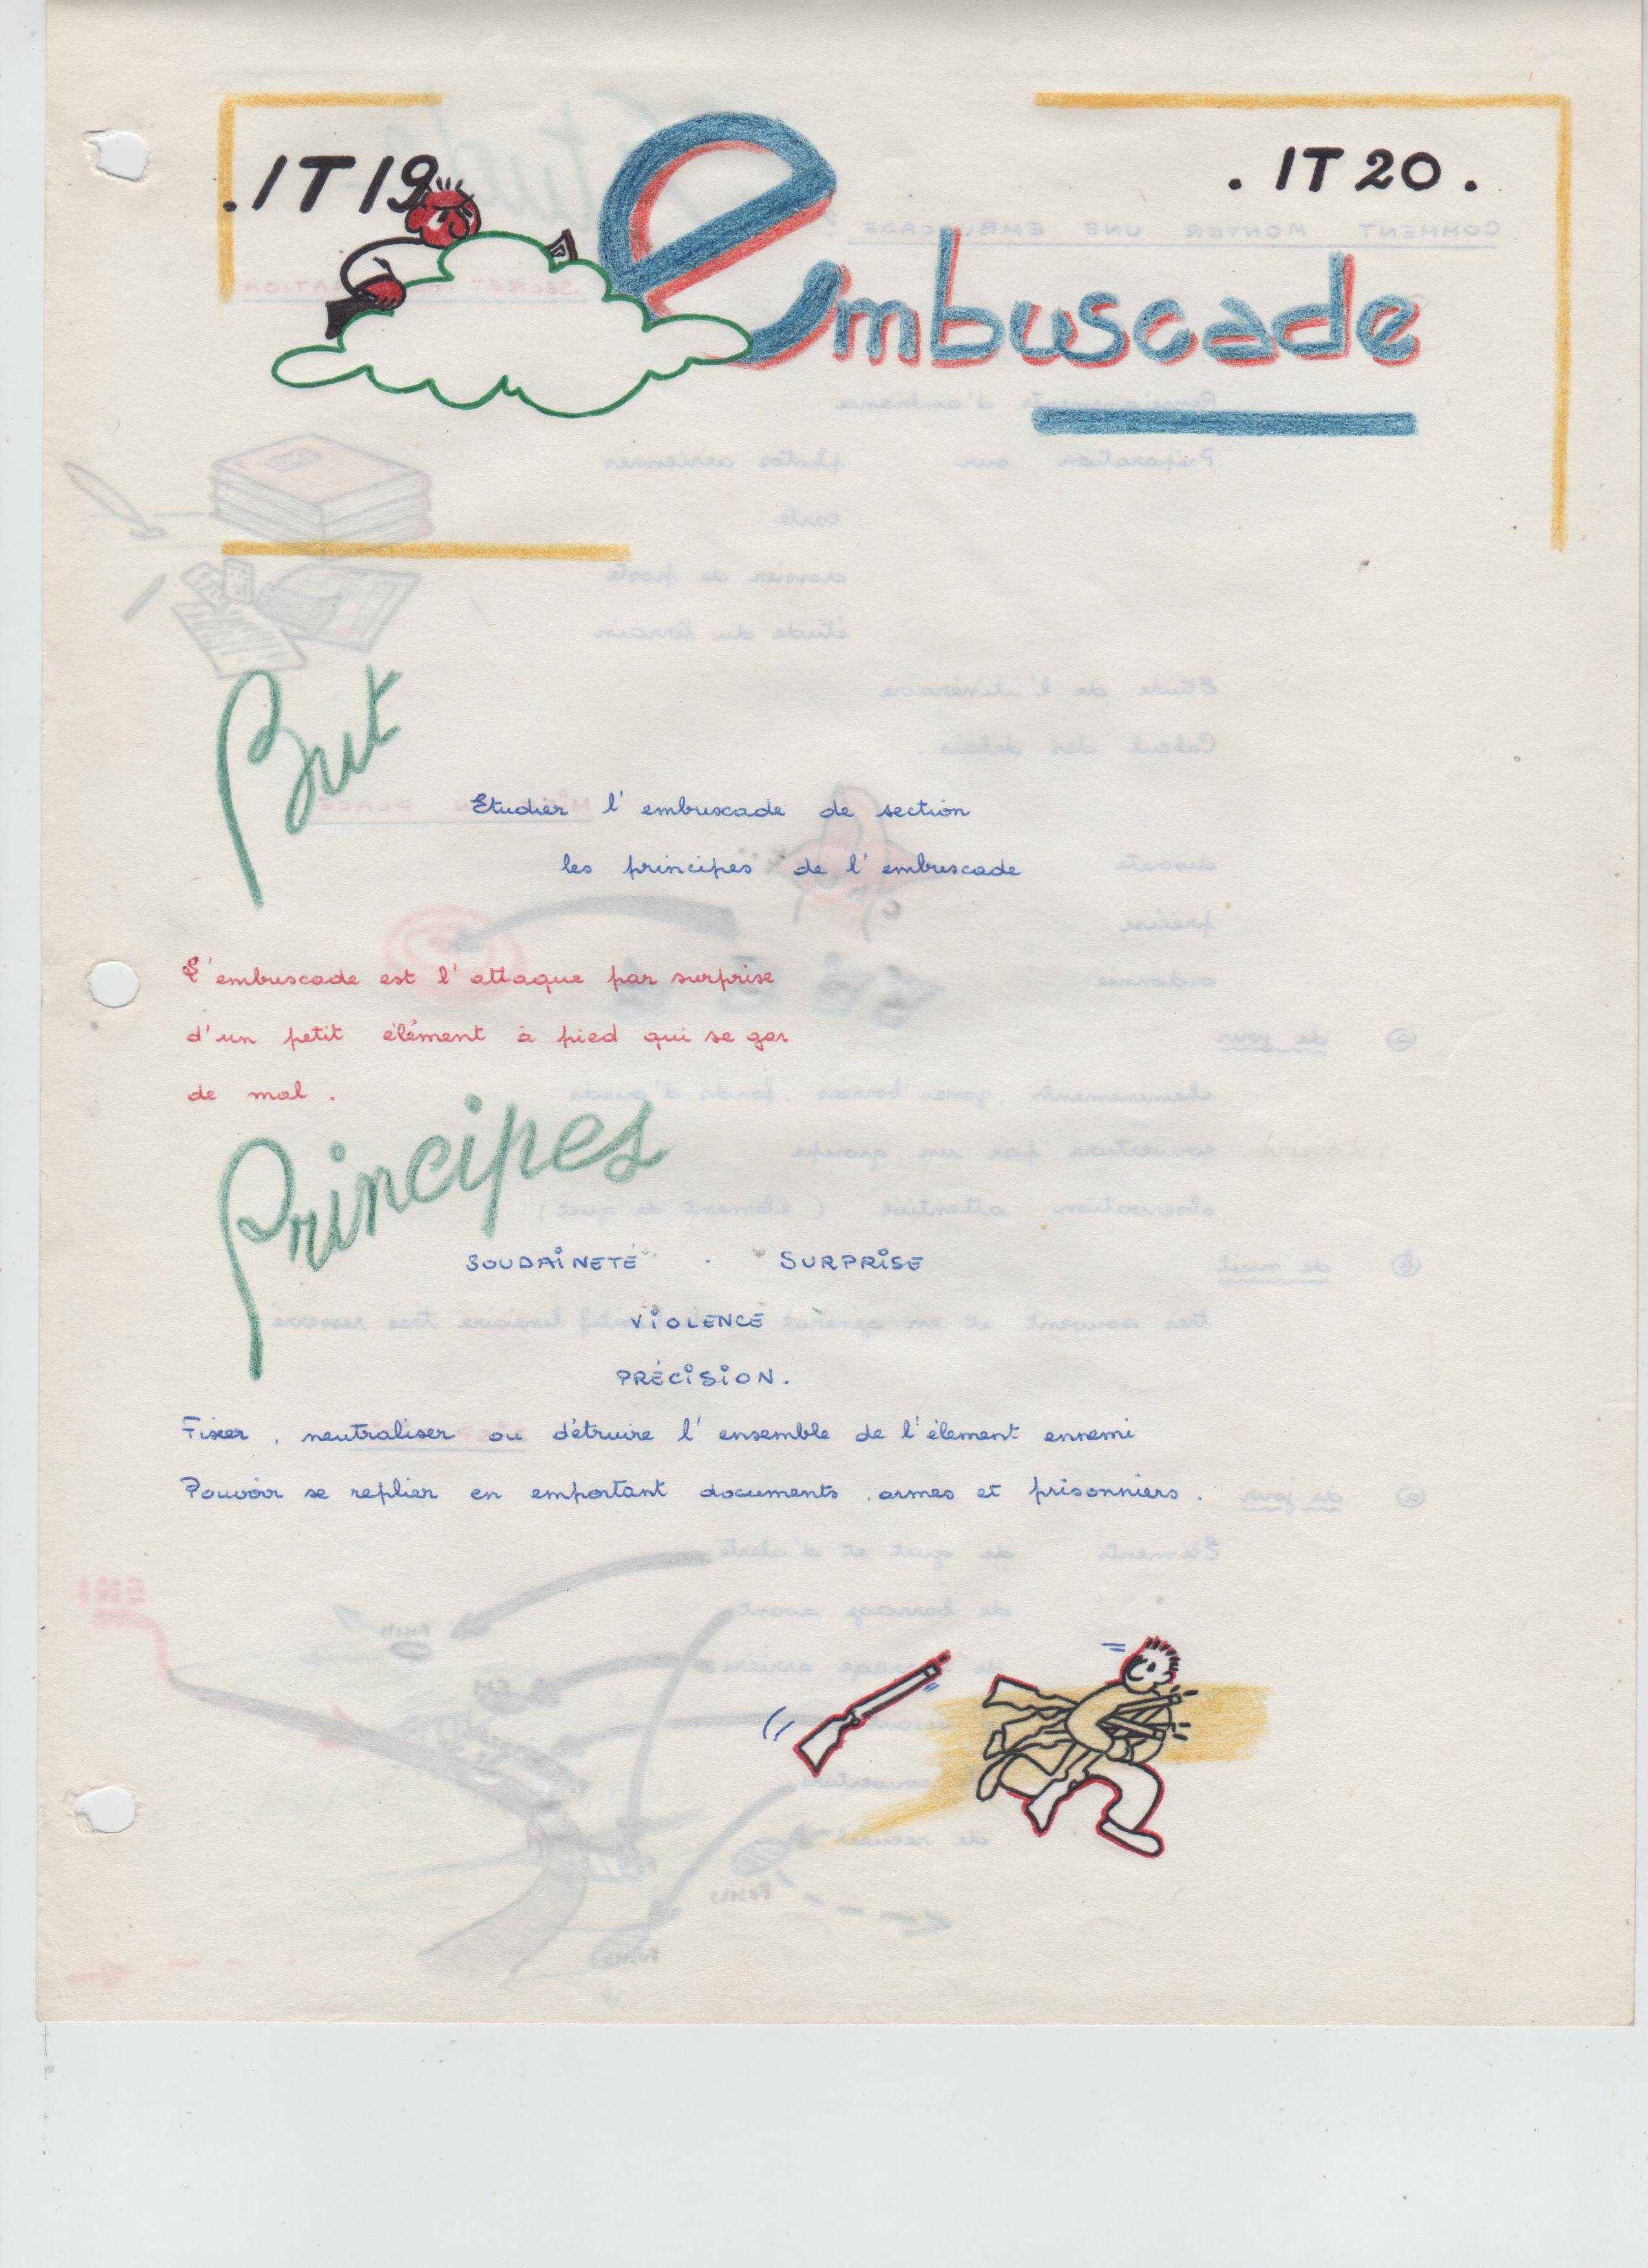 . IT 19
. IT 20 .
embuscade
But
Etudier l' embuscade de section
les principes de l' embuscade
L'embuscade est l'attaque par surprise
d'un petit élément à pied qui se gar
de mal .
Principes
SOUDAINETÉ . SURPRISE
VIOLENCE
PRÉCISION .
Fixer , neutraliser ou détruire l' ensemble de l'élement ennemi
Pouvoir se replier en emportant documents , armes et prisonniers .